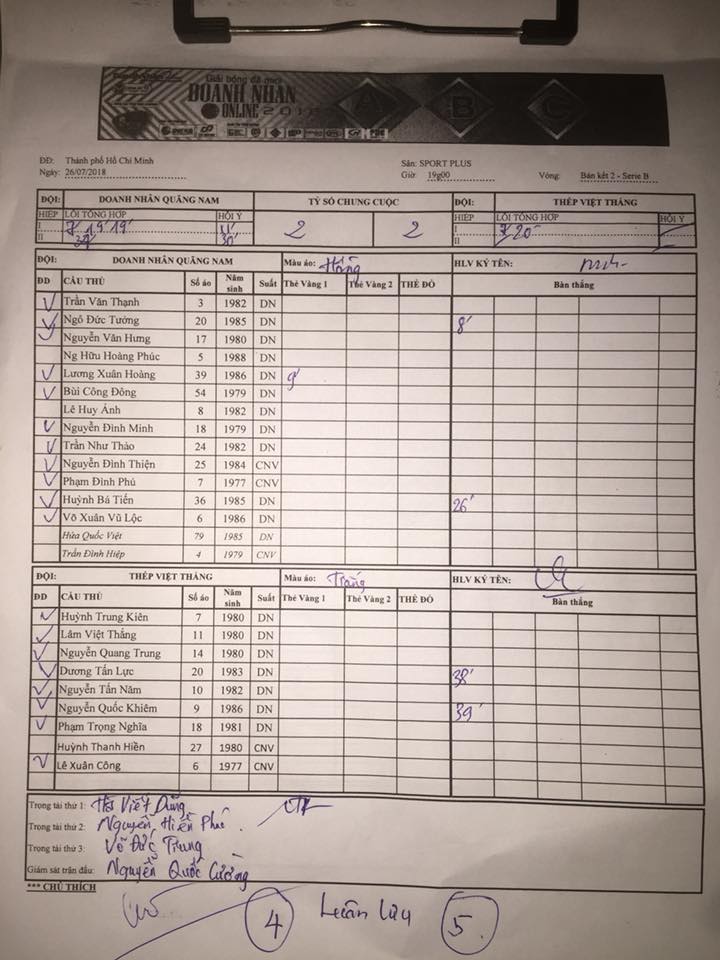 Giải bóng đá mini
DOANH NHÂN
ONLINE
A B C
ĐĐ: Thành phố Hồ Chí Minh Sân: SPORT PLUS
Ngày: 26/07/2018 Giờ: 19g00 Vòng: Bán kết 2 - Serie B
ĐỘI: DOANH NHÂN QUÃNG NAM TỶ SỐ CHUNG CUỘC ĐỘI: THÉP VIỆT THẮNG
HIỆP LỖI TỔNG HỢP HỘI Ý 2 2 HIỆP LỖI TỔNG HỢP HỘI Ý
I 7' 19' 19' 11' I 7' 20'
II 39' 30' II
ĐỘI: DOANH NHÂN QUÃNG NAM Màu áo: Hồng HLV KÝ TÊN:
ĐD CẦU THỦ Số áo Năm sinh Suất Thẻ Vàng 1 Thẻ Vàng 2 THẺ ĐỎ Bàn thắng
Trần Văn Thạnh 3 1982 DN
Ngô Đức Tưởng 20 1985 DN 8'
Nguyễn Văn Hưng 17 1980 DN
Ng Hữu Hoàng Phúc 5 1988 DN
Lương Xuân Hoàng 39 1986 DN 9'
Bùi Công Đông 54 1979 DN
Lê Huy Ảnh 8 1982 DN
Nguyễn Đình Minh 18 1979 DN
Trần Như Thảo 24 1982 DN
Nguyễn Đình Thiện 25 1984 CNV
Phạm Đình Phú 7 1977 CNV
Huỳnh Bá Tiến 36 1985 DN 26'
Võ Xuân Vũ Lộc 6 1986 DN
Hứa Quốc Việt 79 1985 DN
Trần Đình Hiệp 4 1979 CNV
ĐỘI: THÉP VIỆT THẮNG Màu áo: Trắng HLV KÝ TÊN:
ĐD CẦU THỦ Số áo Năm sinh Suất Thẻ Vàng 1 Thẻ Vàng 2 THẺ ĐỎ Bàn thắng
Huỳnh Trung Kiên 7 1980 DN
Lâm Việt Thắng 11 1980 DN
Nguyễn Quang Trung 14 1980 DN
Dương Tấn Lực 20 1983 DN 38'
Nguyễn Tấn Năm 10 1982 DN
Nguyễn Quốc Khiêm 9 1986 DN 39'
Phạm Trọng Nghĩa 18 1981 DN
Huỳnh Thanh Hiền 27 1980 CNV
Lê Xuân Công 6 1977 CNV
Trọng tài thứ 1: Hồ Viết Dũng
Trọng tài thứ 2: Nguyễn Hiền Phúc
Trọng tài thứ 3: Võ Đức Trung
Giám sát trận đấu: Nguyễn Quốc Cường
*** CHÚ THÍCH
4 Luân lưu 5